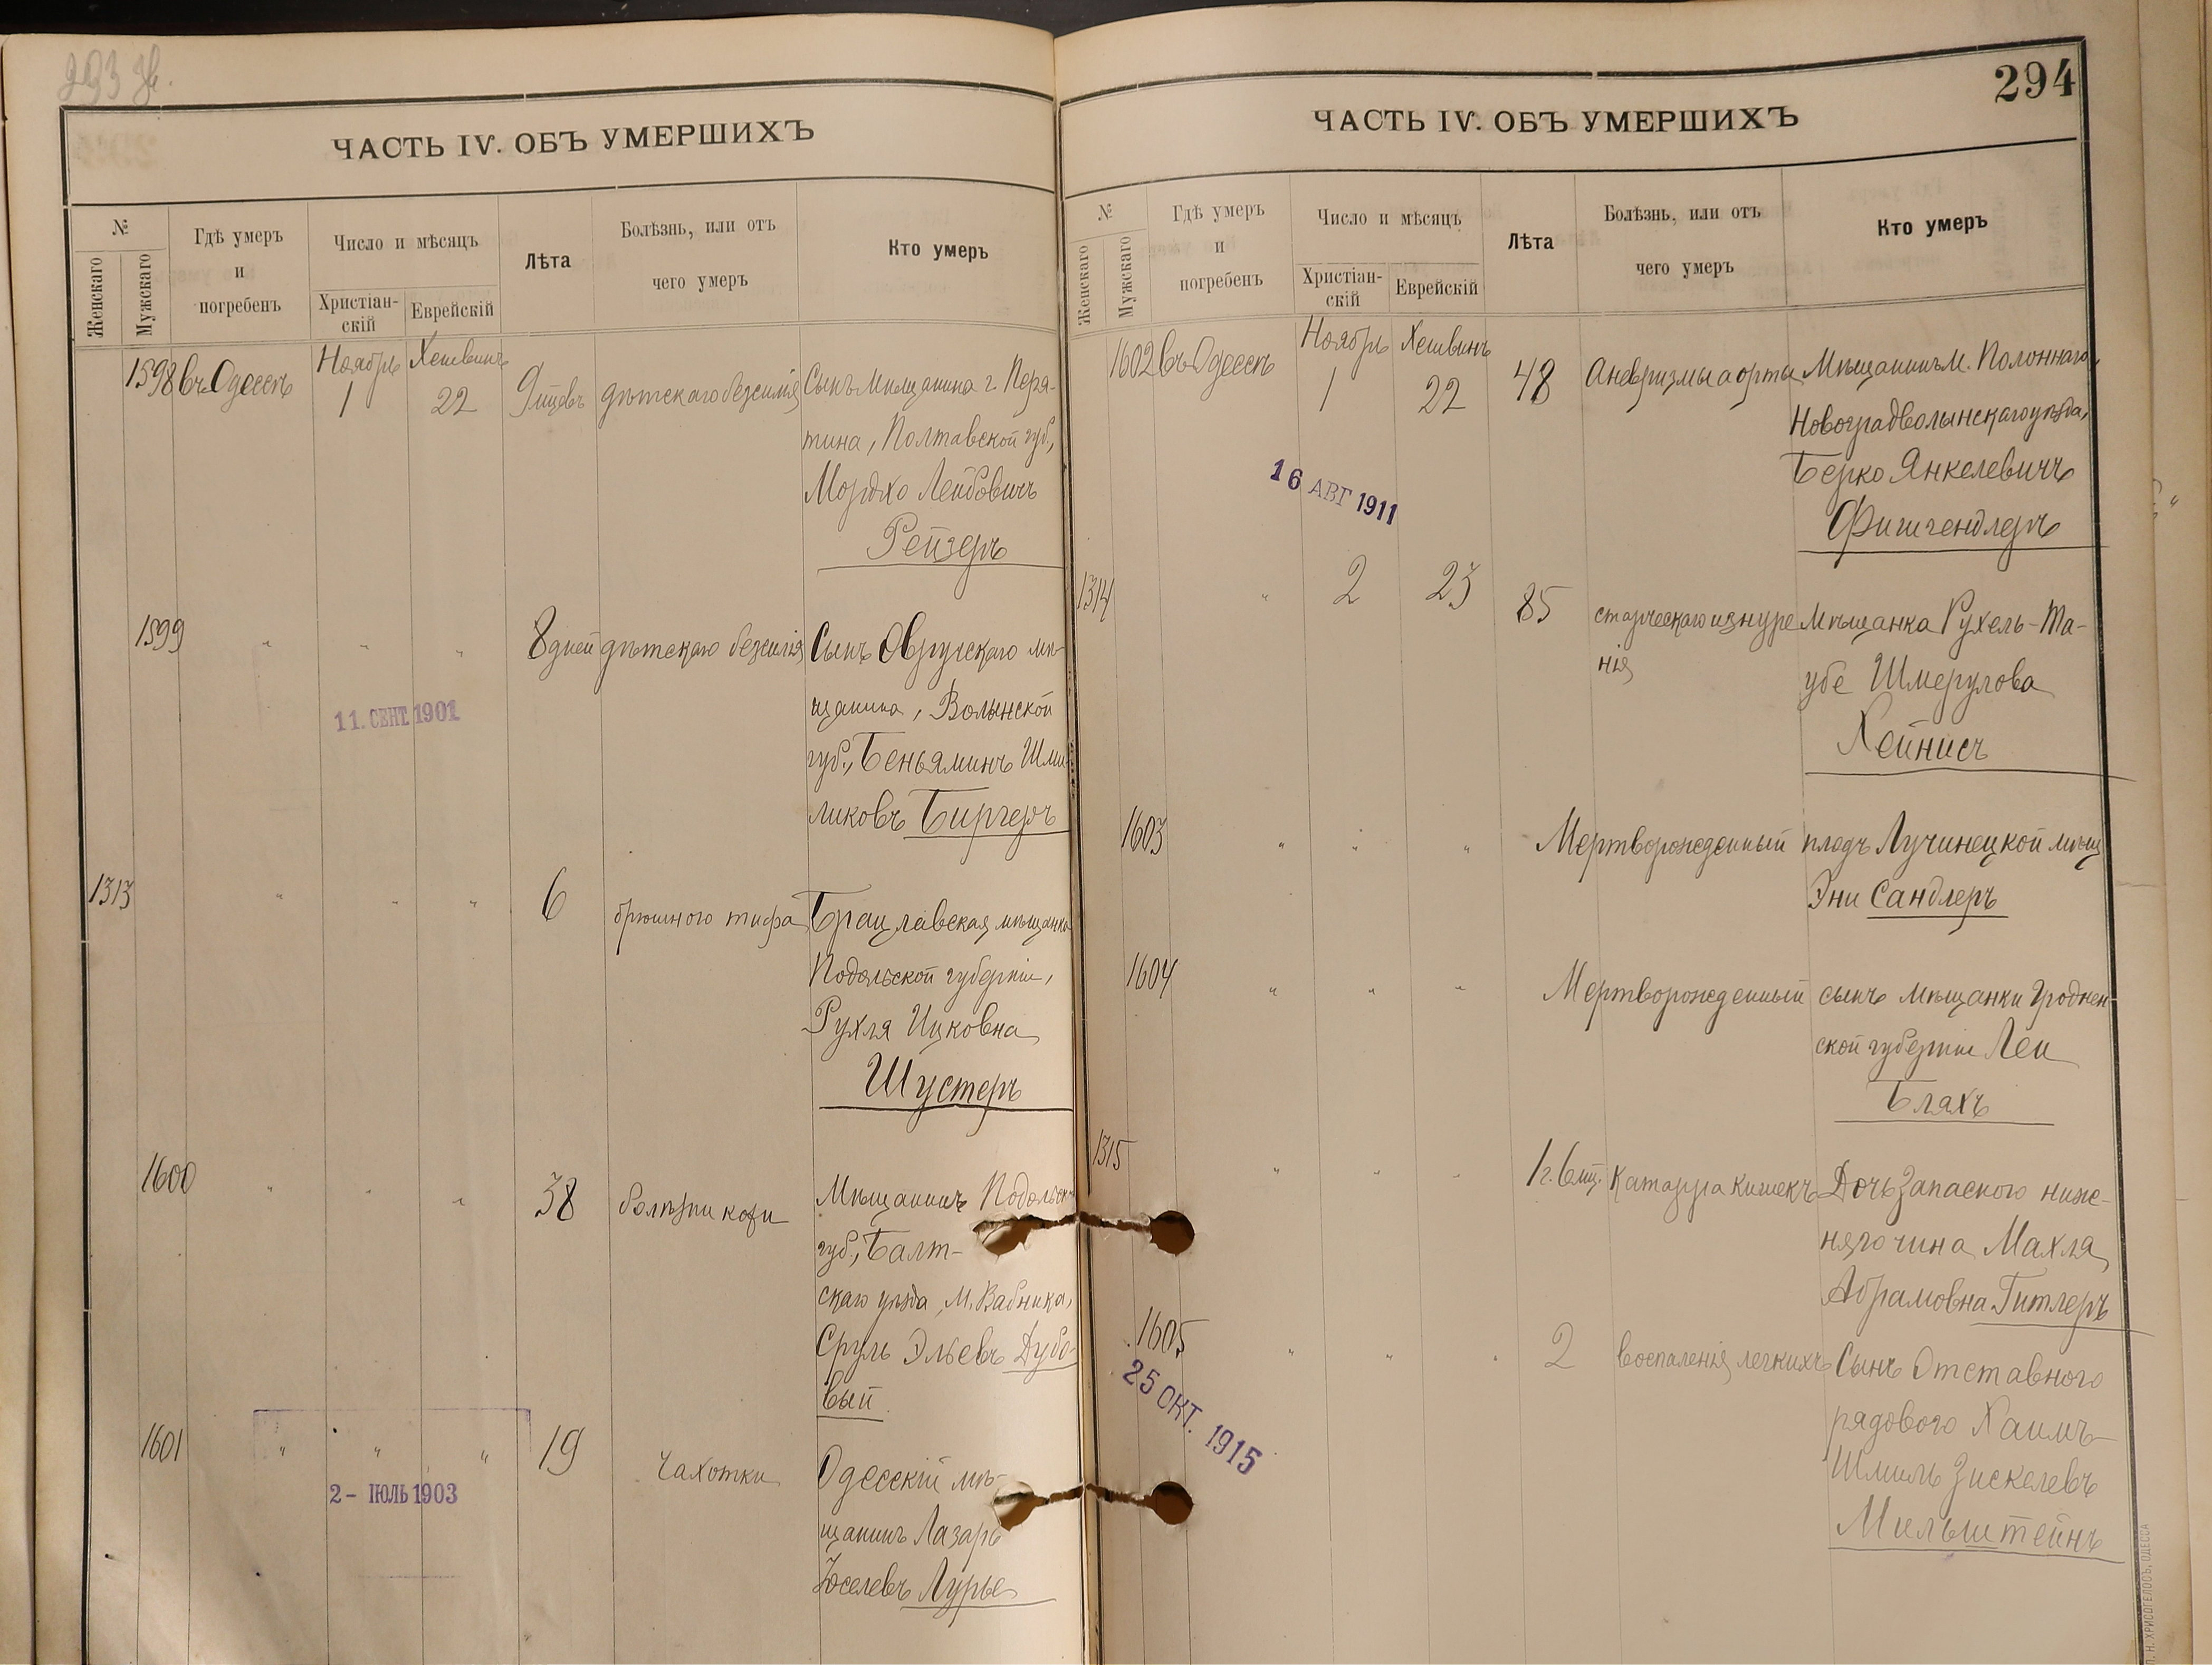 293 об.
ЧАСТЬ IV. ОБЪ УМЕРШИХЪ
№
Женскаго
Мужскаго
Гдѣ умеръ
и
погребенъ
Число и мѣсяцъ
Христіан-
скій
Еврейскій
Лѣта
Болѣзнь, или отъ
чего умеръ
Кто умеръ
1598 въ Одессѣ Ноябрь 1 Хешвинъ 22 9 мцовъ дѣтскаго безсилія Сынъ мѣщанина г. Пиря-
тина, Полтавской губ.,
Мордхо Лейбовичъ
Рейзеръ
1599 " " " 8 дней дѣтскаго безсилія Сынъ Овручскаго мѣ-
щанина, Волынской
губ., Беньяминъ Шми-
ликовъ Биргеръ
11. СЕНТ. 1901
1313 " " " 6 брюшного тифа Брацлавская мѣщанка
Подольской губерніи,
Рухля Ицковна
Шустеръ
1600 " " " 38 болѣзни Мѣщанинъ Подольск.
губ., Балт-
скаго уѣзда, М.
Сруль Эльевъ Дубо-
вый
1601 " " " 19 чахотки Одесскій мѣ-
щанинъ Лазарь
Іоселевъ Лурье
2 - ІЮЛЬ 1903
294
ЧАСТЬ IV. ОБЪ УМЕРШИХЪ
№
Женскаго
Мужскаго
Гдѣ умеръ
и
погребенъ
Число и мѣсяцъ
Христіан-
скій
Еврейскій
Лѣта
Болѣзнь, или отъ
чего умеръ
Кто умеръ
1602 въ Одессѣ Ноябрь 1 Хешвинъ 22 48 Аневризмы аорты Мѣщанинъ М. Полоннаго,
Новоградволынскаго уѣзда,
Берко Янкелевичъ
Фишгендлеръ
16 АВГ 1911
1314 " 2 23 85 старческаго изнуре- Мѣщанка Рухель-Та-
нія убе Шмерулова
Хейнисъ
1603 " " " Мертворожденный плодъ Лучинецкой мѣщ.
Эни Сандлеръ
1604 " " " Мертворожденный сынъ мѣщанки Гроднен-
ской губерніи Леи
Бляхъ
1315 " " " 1 г. 6 мц. Катарра кишекъ Дочь запаснаго ниж-
няго чина Махля
Абрамовна Гитлеръ
1605 " " " 2 воспаленія легкихъ Сынъ Отставного
рядового Хаимъ-
Шмиль Зискелевъ
Мильштейнъ
25 ОКТ. 1915
П. Н. ХРИСОГЕЛОСЪ, ОДЕССА